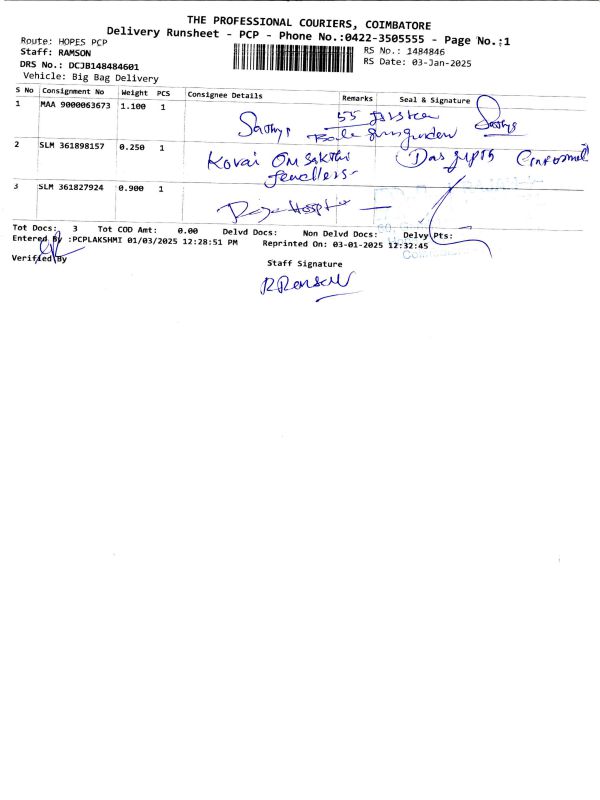 THE PROFESSIONAL COURIERS, COIMBATORE
Delivery Runsheet - PCP - Phone No.:0422-3505555 - Page No.:1
Route: HOPES PCP
RS No.: 1484846
Staff: RAMSON
RS Date: 03-Jan-2025
DRS No.: DCJB148484601
Vehicle: Big Bag Delivery
S No Consignment No Weight PCS Consignee Details Remarks Seal & Signature
1 MAA 9000063673 1.100 1 55
2 SLM 361898157 0.250 1 Kovai Om Sakthi Das gupta
3 SLM 361827924 0.900 1
Tot Docs: 3 Tot COD Amt: 0.00 Delvd Docs: Non Delvd Docs: Delvy Pts:
Entered By :PCPLAKSHMI 01/03/2025 12:28:51 PM Reprinted On: 03-01-2025 12:32:45
Verified By
Staff Signature